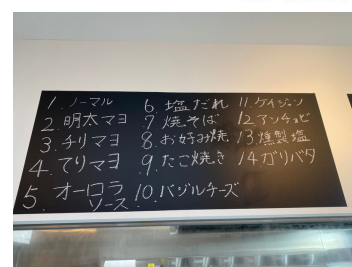 1.ノーマル
2.明太マヨ
3.チリマヨ
4.てりマヨ
5.オーロラ
ソース
6.塩だれ
7.焼そば
8.お好み焼
9.たこ焼き
10.バジルチーズ
11.ケイジャン
12.アンチョビ
13.燻製塩
14.ガリバタ